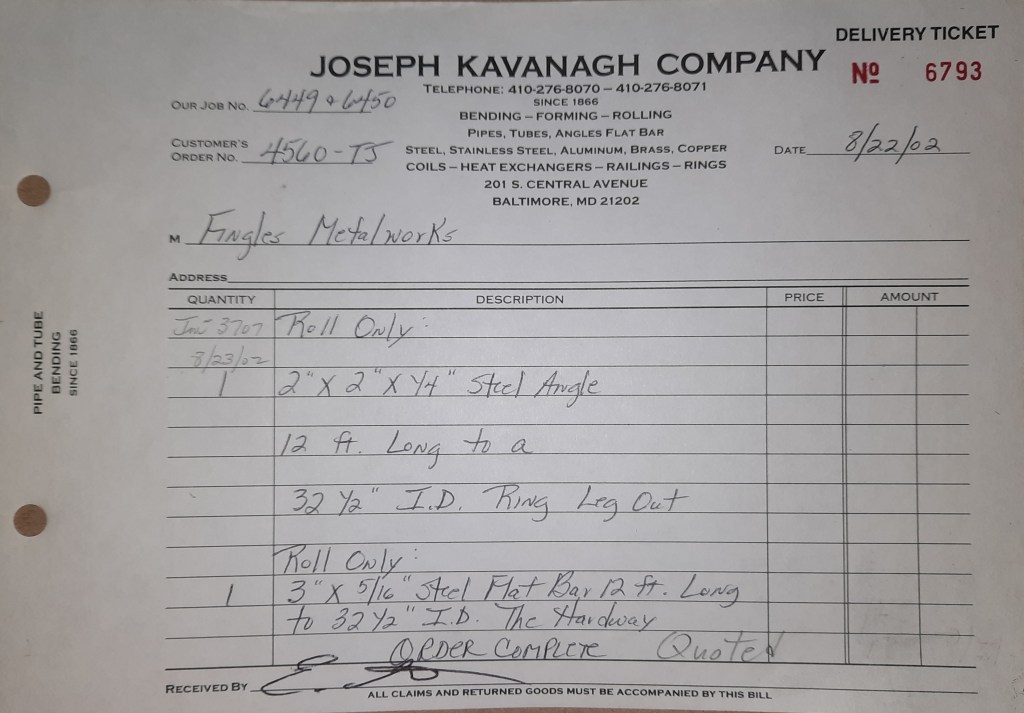 DELIVERY TICKET
JOSEPH KAVANAGH COMPANY
Nº 6793
TELEPHONE: 410-276-8070 – 410-276-8071
SINCE 1866
OUR JOB NO. 6449 & 6450
BENDING – FORMING – ROLLING
PIPES, TUBES, ANGLES FLAT BAR
CUSTOMER'S
ORDER NO. 4560-TJ
STEEL, STAINLESS STEEL, ALUMINUM, BRASS, COPPER
DATE 8/22/02
COILS – HEAT EXCHANGERS – RAILINGS – RINGS
201 S. CENTRAL AVENUE
BALTIMORE, MD 21202
M Fingles Metalworks
ADDRESS
QUANTITY DESCRIPTION PRICE AMOUNT
Inv 3707 Roll Only:
8/23/02
1 2" X 2" X 1/4" Steel Angle
12 ft. Long to a
32 1/2" I.D. Ring Leg Out
Roll Only:
1 3" X 5/16" Steel Flat Bar 12 ft. Long
to 32 1/2" I.D. The Hardway
ORDER COMPLETE Quoted
RECEIVED BY
ALL CLAIMS AND RETURNED GOODS MUST BE ACCOMPANIED BY THIS BILL
PIPE AND TUBE
BENDING
SINCE 1866